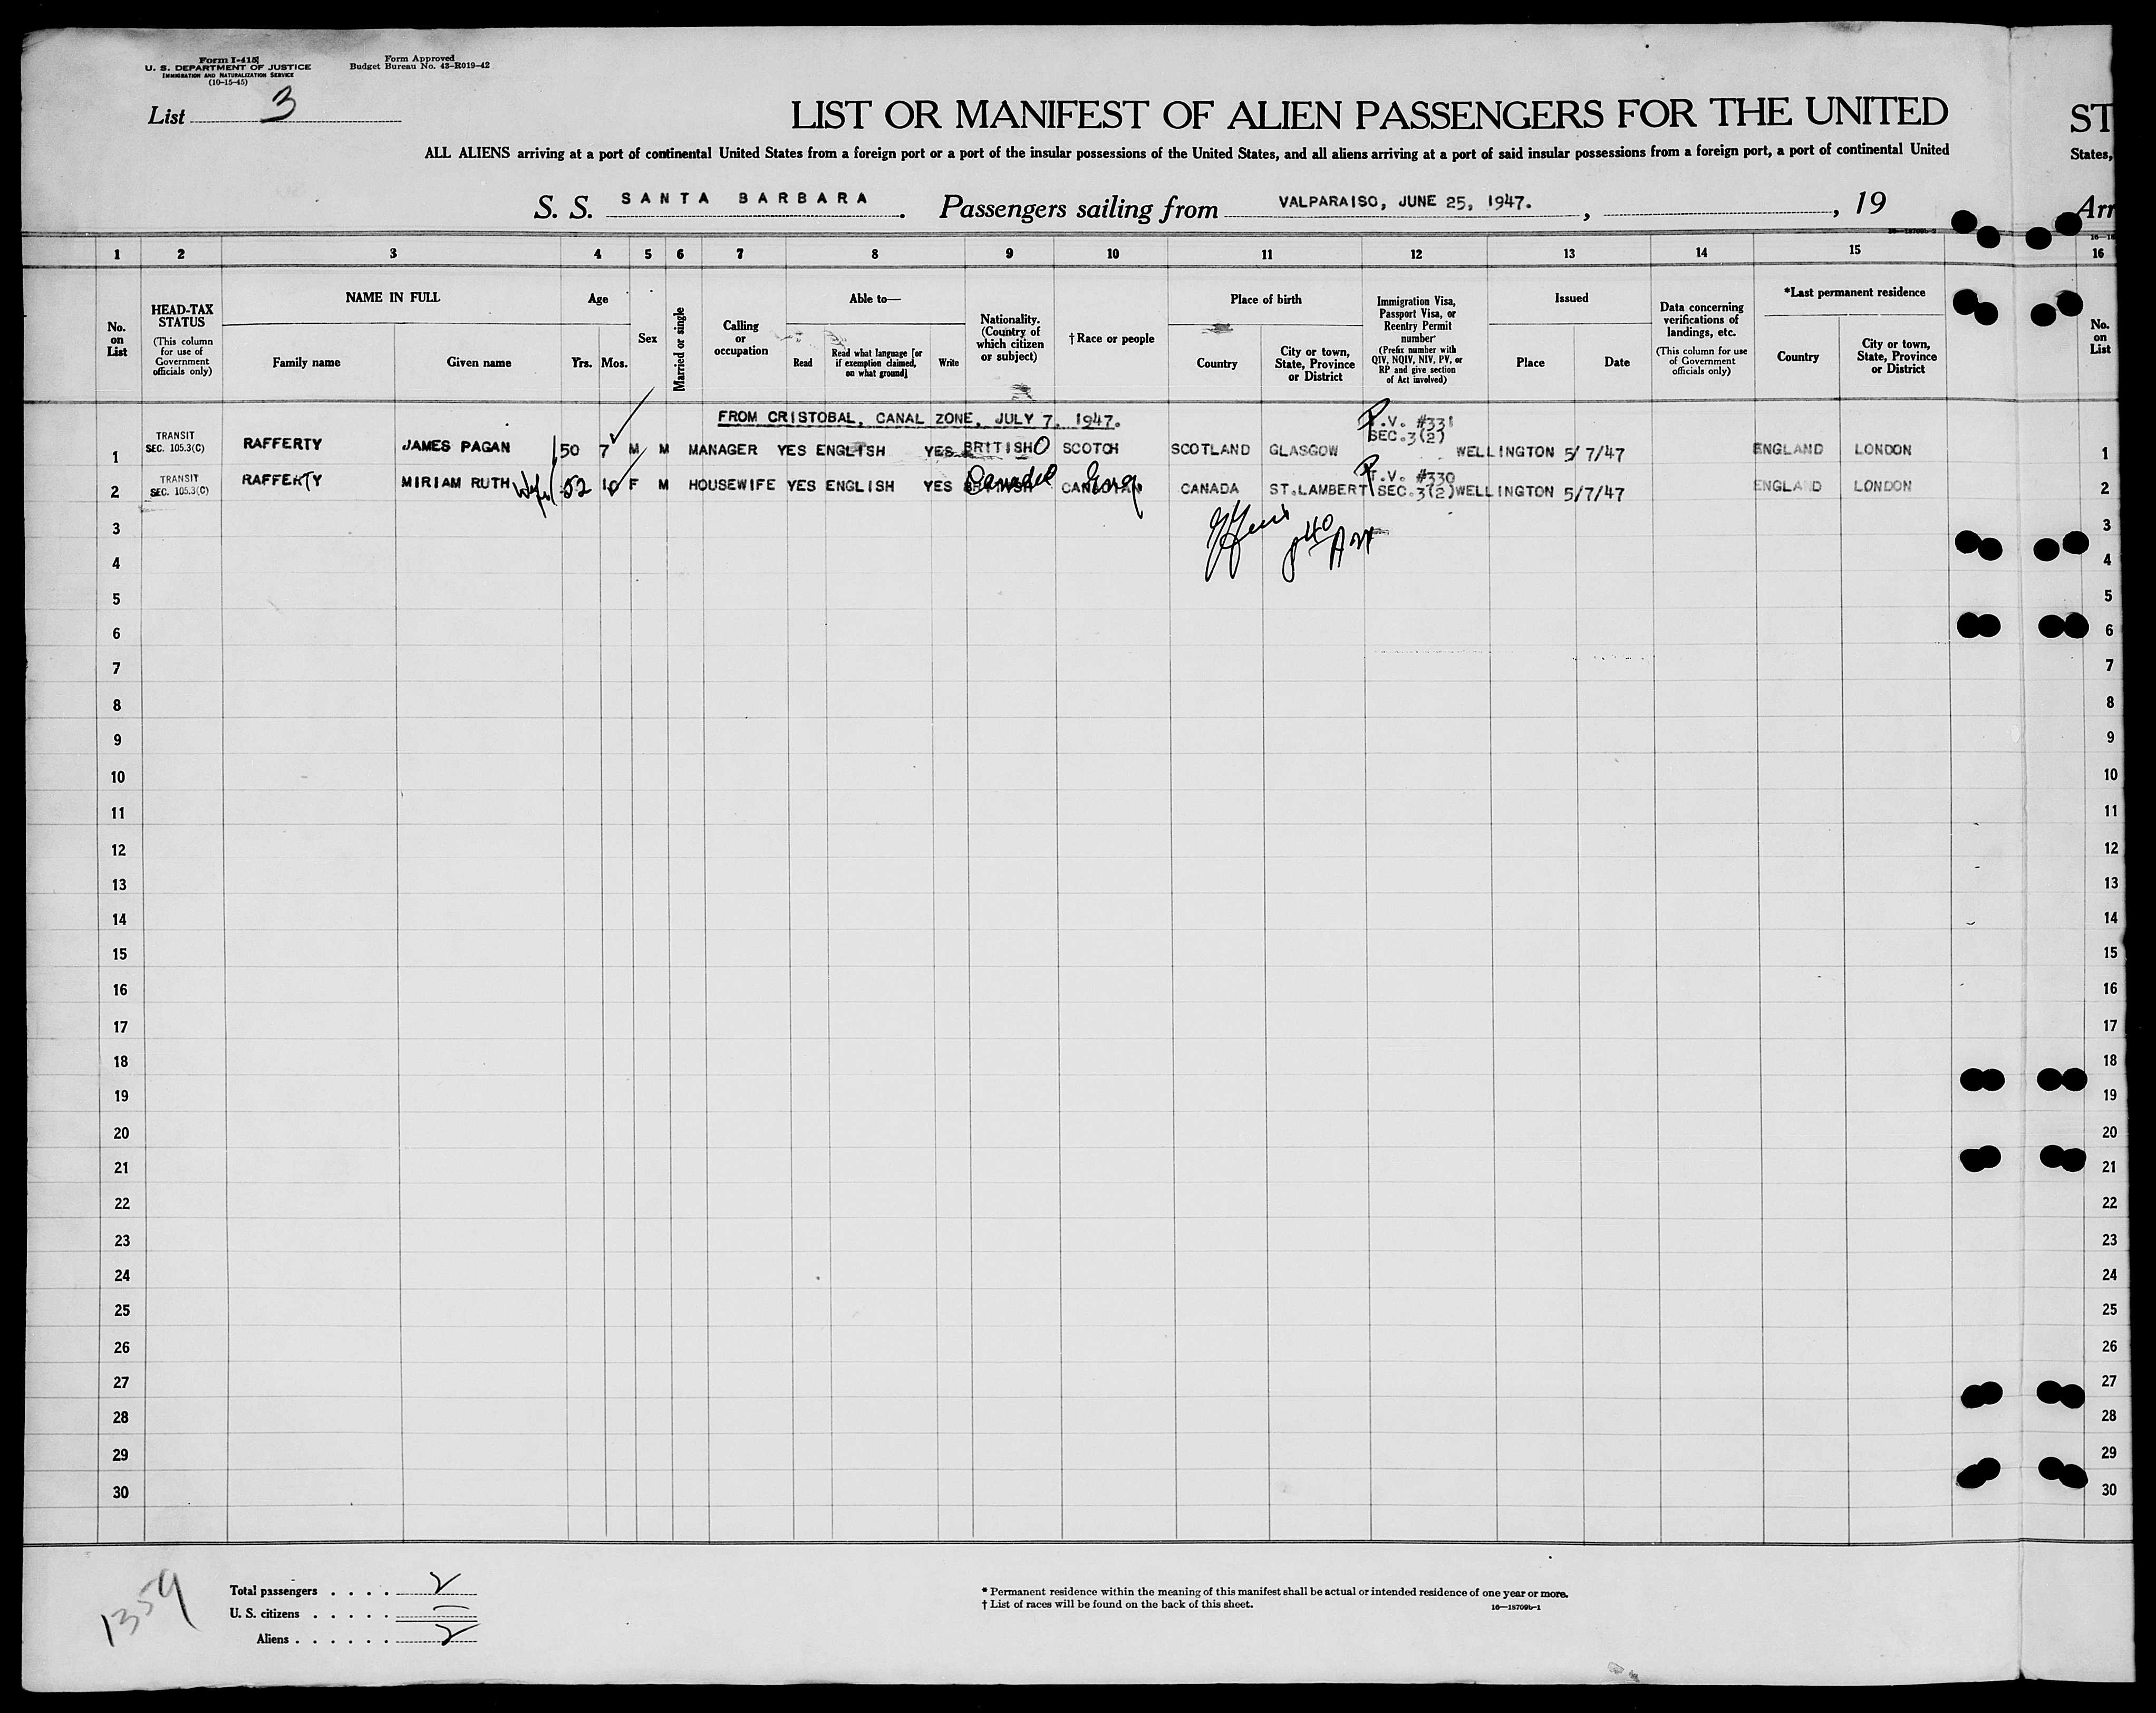 Form I-415
U. S. DEPARTMENT OF JUSTICE
IMMIGRATION AND NATURALIZATION SERVICE
(10-15-45)
Form Approved
Budget Bureau No. 43-R019-42
List 3
LIST OR MANIFEST OF ALIEN PASSENGERS FOR THE UNITED ST
ALL ALIENS arriving at a port of continental United States from a foreign port or a port of the insular possessions of the United States, and all aliens arriving at a port of said insular possessions from a foreign port, a port of continental United States,
S. S. SANTA BARBARA. Passengers sailing from VALPARAISO, JUNE 25, 1947. , , 19 Arr
1 2 3 4 5 6 7 8 9 10 11 12 13 14 15 16
No. on List
HEAD-TAX STATUS
(This column for use of Government officials only)
NAME IN FULL
Family name
Given name
Age
Yrs. Mos.
Sex
Married or single
Calling or occupation
Able to—
Read
Read what language [or if exemption claimed, on what ground]
Write
Nationality. (Country of which citizen or subject)
† Race or people
Place of birth
Country
City or town, State, Province or District
Immigration Visa, Passport Visa, or Reentry Permit number
(Prefix number with QIV, NQIV, NIV, PV, or RP and give section of Act involved)
Issued
Place
Date
Data concerning verifications of landings, etc.
(This column for use of Government officials only)
*Last permanent residence
Country
City or town, State, Province or District
No. on List
FROM CRISTOBAL, CANAL ZONE, JULY 7, 1947.
1 TRANSIT SEC. 105.3(C) RAFFERTY JAMES PAGAN 50 7 M M MANAGER YES ENGLISH YES BRITISH SCOTCH SCOTLAND GLASGOW P.V. #331 SEC.3(2) WELLINGTON 5/7/47 ENGLAND LONDON 1
2 TRANSIT SEC. 105.3(C) RAFFERTY MIRIAM RUTH Wife 52 10 F M HOUSEWIFE YES ENGLISH YES Canada Eng. CANADA ST.LAMBERT P.V. #330 SEC.3(2) WELLINGTON 5/7/47 ENGLAND LONDON 2
3 3
4 4
5 5
6 6
7 7
8 8
9 9
10 10
11 11
12 12
13 13
14 14
15 15
16 16
17 17
18 18
19 19
20 20
21 21
22 22
23 23
24 24
25 25
26 26
27 27
28 28
29 29
30 30
1359
Total passengers . . . . 2
U. S. citizens . . . . . —
Aliens . . . . . . 2
* Permanent residence within the meaning of this manifest shall be actual or intended residence of one year or more.
† List of races will be found on the back of this sheet.
16—18709b-1